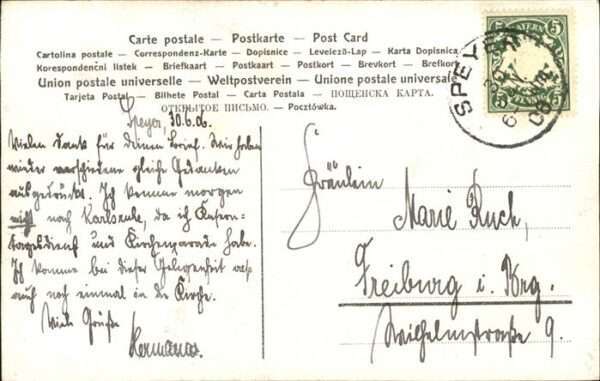 Carte postale — Postkarte — Post Card
Cartolina postale — Correspondenz-Karte — Dopisnice — Levelező-Lap — Karta Dopisnica
Korespondenční lístek — Briefkaart — Postkaart — Postkort — Brevkort — Brefkort
Union postale universelle — Weltpostverein — Unione postale universale
Tarjeta Postal — Bilhete Postal — Carta Postala — ПОЩЕНСКА КАРТА.
ОТКРЫТОЕ ПИСЬМО. — Pocztówka.
SPEYER
5 BAYERN 5
Speyer, 30.6.06.
Vielen Dank für deinen Brief. Wir haben
wieder verschiedene gleiche Gedanken
ausgedrückt. Ich komme morgen
nicht nach Karlsruhe, da ich
und Kirchenparade habe.
Ich komme bei dieser Gelegenheit
auch noch einmal in die Kirche.
Viele Grüße
Hermann.
Fräulein
Marie Ruch,
Freiburg i. Brg.
Wilhelmstraße 9.